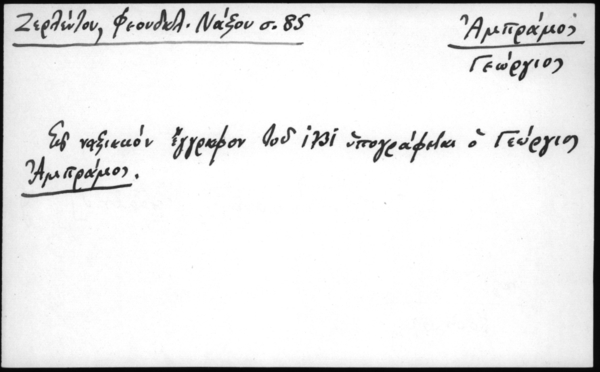 Ζερλέντου, Φεουδαλ. Νάξου σ. 85
Ἀμπράμος
Γεώργιος
Εἰς ναξιακόν ἔγγραφον τοῦ ὑπογράφεται ὁ Γεώργιος
Ἀμπράμος.